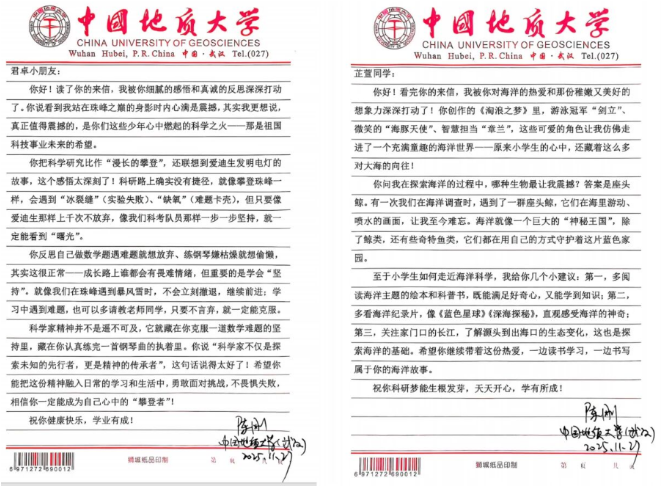 中国地质大学
CHINA UNIVERSITY OF GEOSCIENCES
Wuhan Hubei, P.R. China 中国·武汉 Tel.(027)
君卓小朋友：
你好！读了你的来信，我被你细腻的感悟和真诚的反思深深打动
了。你说看到我站在珠峰之巅的身影时内心满是震撼，其实我更想说，
真正值得震撼的，是你们这些少年心中燃起的科学之火——那是祖国
科技事业未来的希望。
你把科学研究比作“漫长的攀登”，还联想到爱迪生发明电灯的
故事，这个感悟太深刻了！科研路上确实没有捷径，就像攀登珠峰一
样，会遇到“冰裂缝”（实验失败）、“缺氧”（难题卡壳），但只要像
爱迪生那样上千次不放弃，像我们科考队员那样一步一步坚持，就一
定能看到“曙光”。
你反思自己做数学题遇难题就想放弃、练钢琴嫌枯燥就想偷懒，
其实这很正常——成长路上谁都会有畏难情绪，但重要的是学会“坚
持”。就像我们在珠峰遇到暴风雪时，不会立刻撤退，继续前进；学
习中遇到难题，也可以多请教老师同学，只要不言弃，就一定能克服。
科学家精神并不是遥不可及，它就藏在你克服一道数学难题的坚
持里，藏在你认真练完一首钢琴曲的执着里。你说“科学家不仅是探
索未知的先行者，更是精神的传承者”，这句话说得太好了！希望你
能把这份精神融入日常的学习和生活中，勇敢面对挑战，不畏惧失败，
相信你一定能成为自己心中的“攀登者”！
祝你健康快乐，学业有成！
陈刚
中国地质大学(武汉)
2025.11.27
6 971272 690012
狮城纸品印制
第 页 共 页
中国地质大学
CHINA UNIVERSITY OF GEOSCIENCES
Wuhan Hubei, P.R. China 中国·武汉 Tel.(027)
正萱同学：
你好！看完你的来信，我被你对海洋的热爱和那份稚嫩又美好的
想象力深深打动了！你创作的《淘浪之梦》里，游泳冠军“剑立”、
微笑的“海豚天使”、智慧担当“章兰”，这些可爱的角色让我仿佛走
进了一个充满童趣的海洋世界——原来小学生的心中，还藏着这么多
对大海的向往！
你问我在探索海洋的过程中，哪种生物最让我震撼？答案是座头
鲸。有一次我们在海洋调查时，遇到了一群座头鲸，它们在海里游动、
喷水的画面，让我至今难忘。海洋就像一个巨大的“神秘王国”，除
了鲸类，还有些奇特鱼类，它们都在用自己的方式守护着这片蓝色家
园。
至于小学生如何走近海洋科学，我给你几个小建议：第一，多阅
读海洋主题的绘本和科普书，既能满足好奇心，又能学到知识；第二，
多看海洋纪录片，像《蓝色星球》《深海探秘》，直观感受海洋的神奇；
第三，关注家门口的长江，了解源头到出海口的生态变化，这也是探
索海洋的基础。希望你继续带着这份热爱，一边读书学习，一边书写
属于你的海洋故事。
祝你科研梦能生根发芽，天天开心，学有所成！
陈刚
中国地质大学(武汉)
2025.11.27
6 971272 690012
狮城纸品印制
第 页 共 页